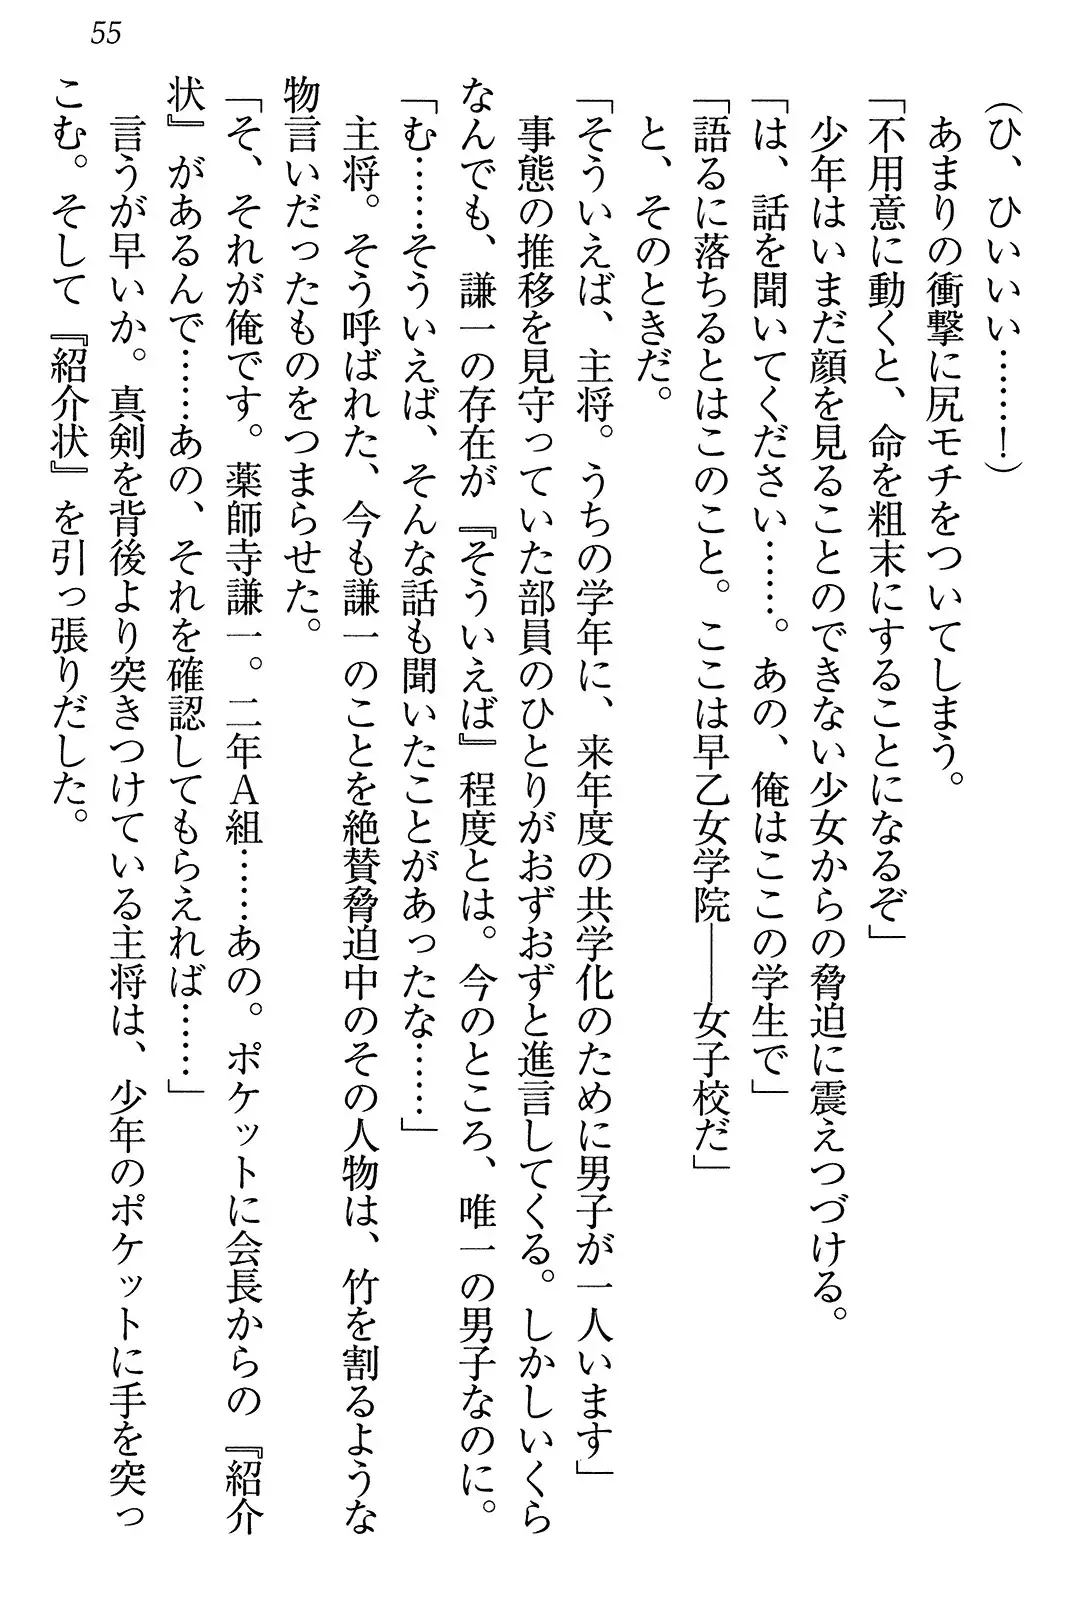 55
(ひ、ひいいい……！)
　あまりの衝撃に尻モチをついてしまう。
「不用意に動くと、命を粗末にすることになるぞ」
　少年はいまだ顔を見ることのできない少女からの脅迫に震えつづける。
「は、話を聞いてください……。あの、俺はここの学生で」
「語るに落ちるとはこのこと。ここは早乙女学院――女子校だ」
　と、そのときだ。
「そういえば、主将。うちの学年に、来年度の共学化のために男子が一人います」
　事態の推移を見守っていた部員のひとりがおずおずと進言してくる。しかしいくら
なんでも、謙一の存在が『そういえば』程度とは。今のところ、唯一の男子なのに。
「む……そういえば、そんな話も聞いたことがあったな……」
　主将。そう呼ばれた、今も謙一のことを絶賛脅迫中のその人物は、竹を割るような
物言いだったものをつまらせた。
「そ、それが俺です。薬師寺謙一。二年Ａ組……あの。ポケットに会長からの『紹介
状』があるんで……あの、それを確認してもらえれば……」
　言うが早いか。真剣を背後より突きつけている主将は、少年のポケットに手を突っ
こむ。そして『紹介状』を引っ張りだした。